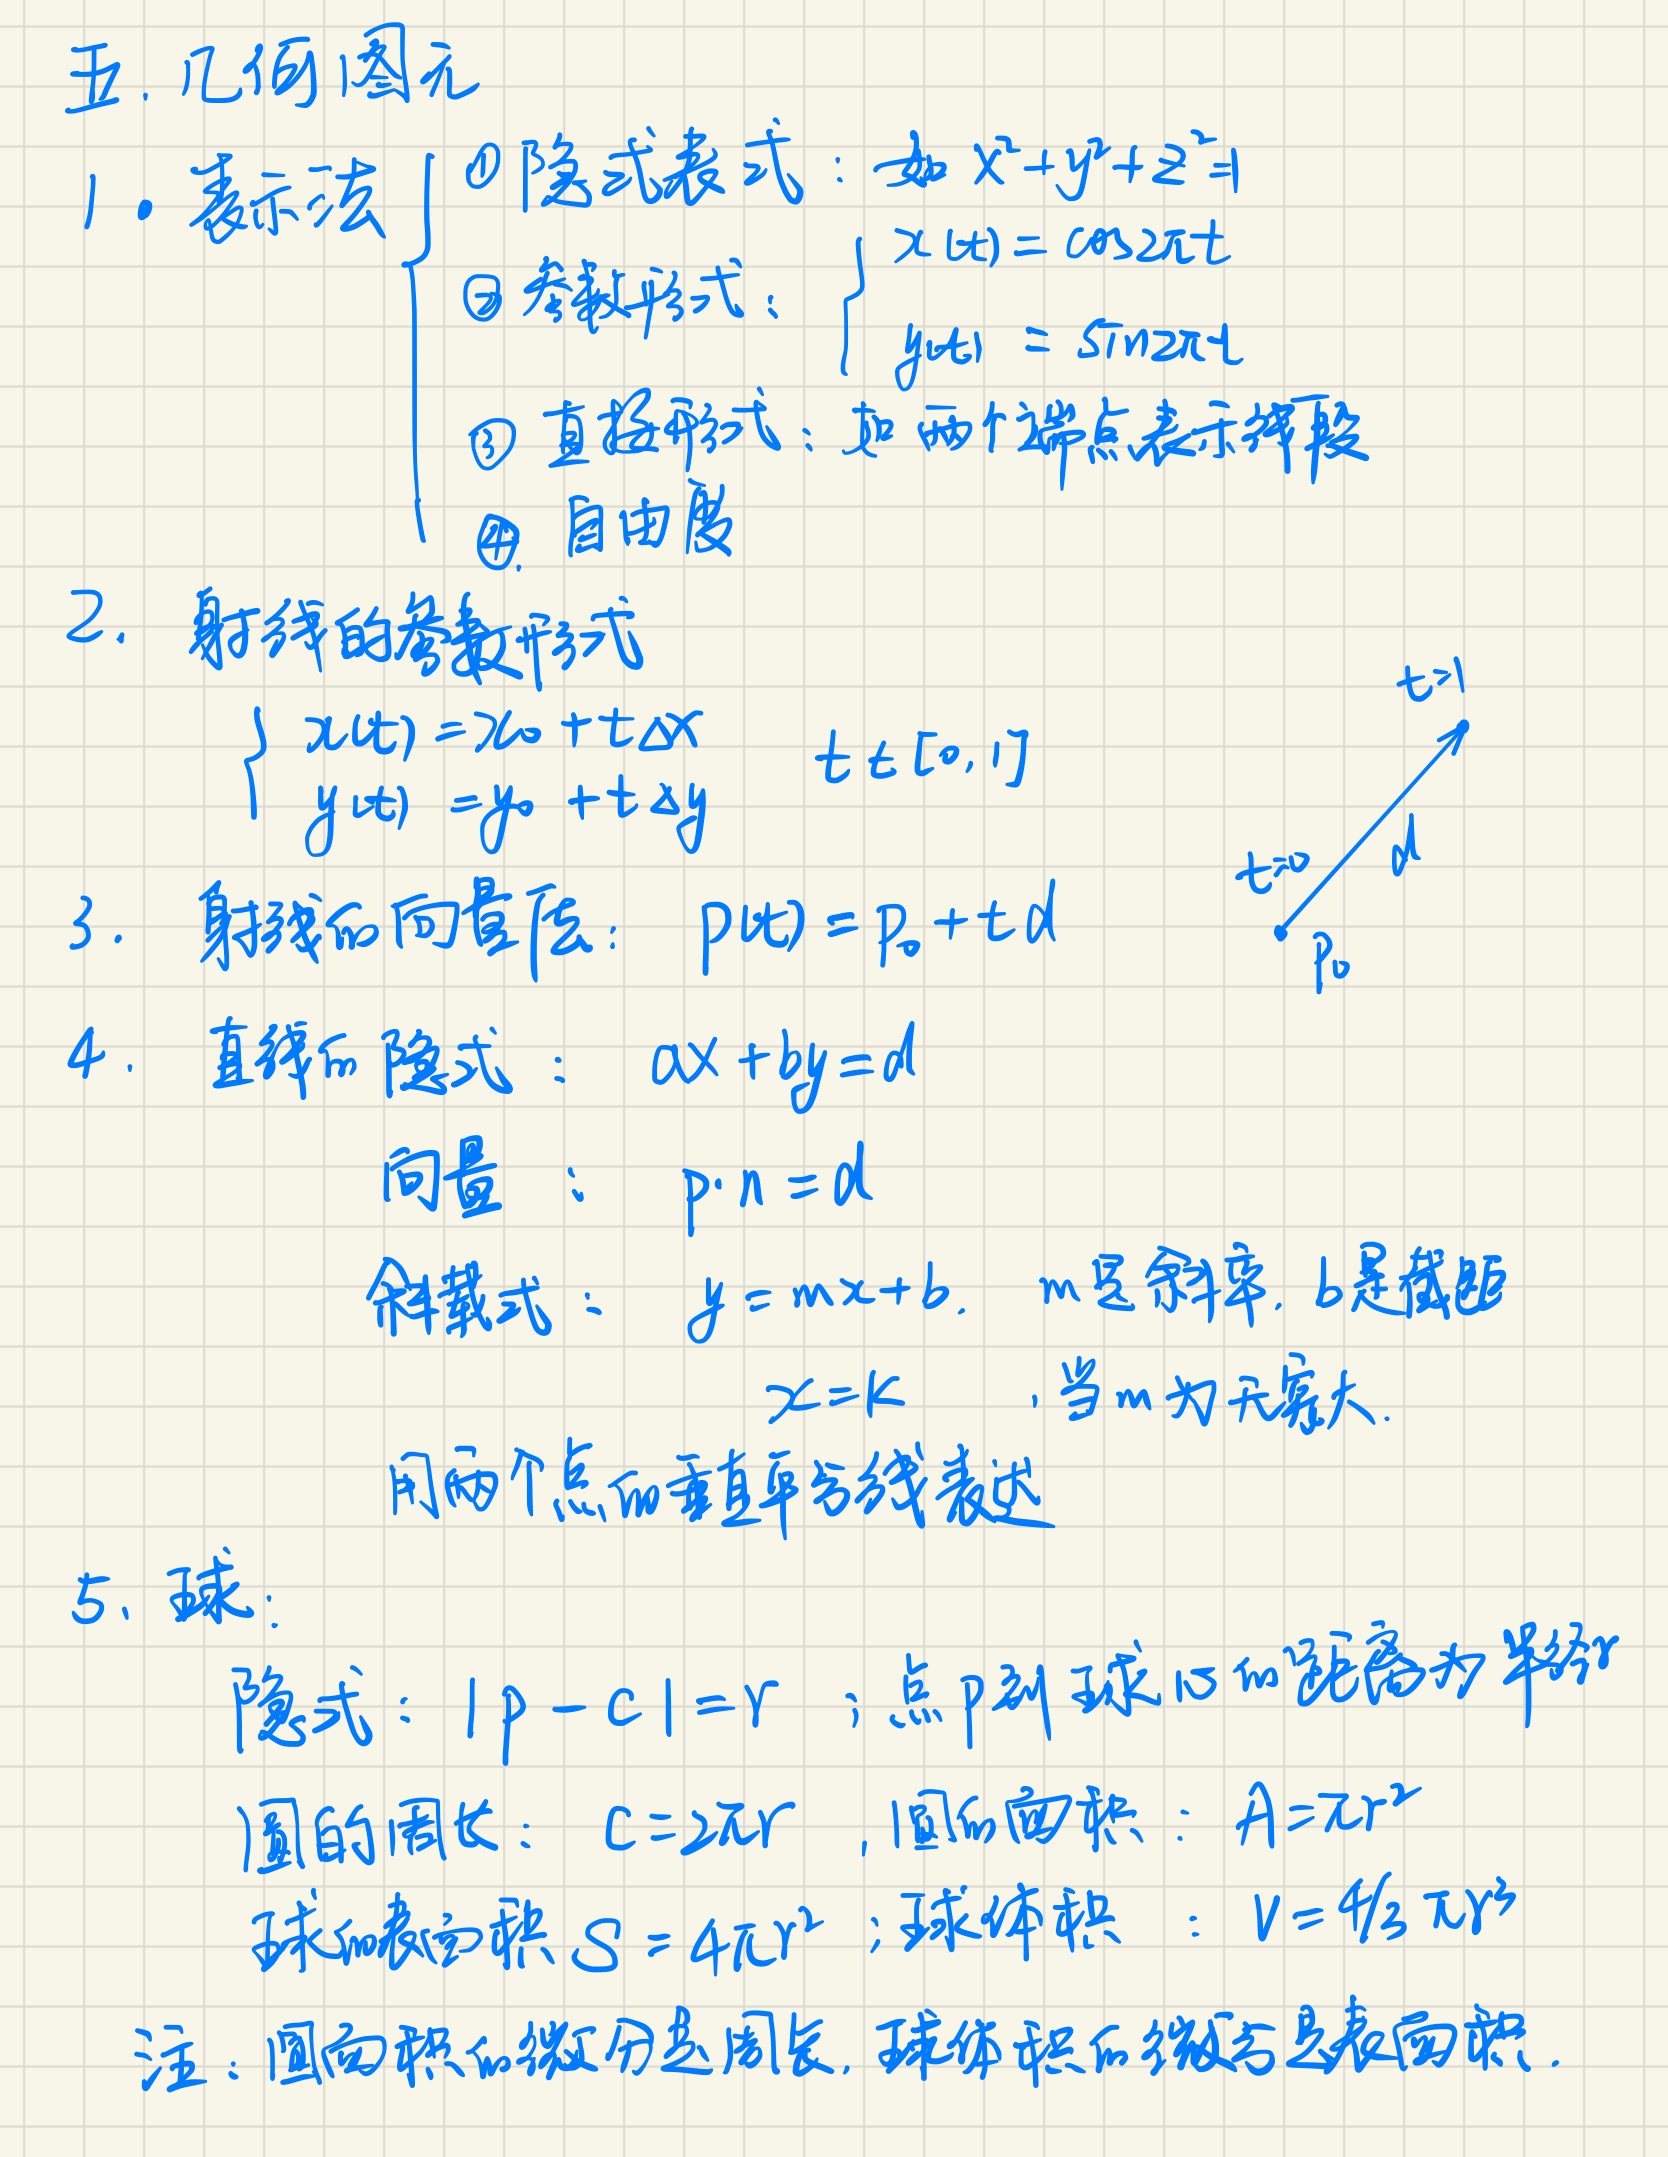 五. 几何图元
1. 表示法
① 隐式表式: 如 x²+y²+z²=1
② 参数形式: { x(t) = cos2πt
y(t) = sin2πt
③ 直接形式: 如两个端点表示线段
④. 自由度
2. 射线的参数形式
{ x(t) = x₀ + tΔx
y(t) = y₀ + tΔy
t ∈ [0,1]
t=1
d
t=0
p₀
3. 射线的向量法: p(t) = p₀ + td
4. 直线的隐式: ax + by = d
向量: p·n = d
斜截式: y = mx+b. m是斜率. b是截距
x = k , 当m为无穷大.
用两个点的垂直平分线表达
5、球:
隐式: |p - c| = r ; 点p到球心的距离为半径r
圆的周长: C = 2πr , 圆的面积: A = πr²
球的表面积 S = 4πr² ; 球体积: V = 4/3 πr³
注: 圆面积的微分是周长, 球体积的微分是表面积.